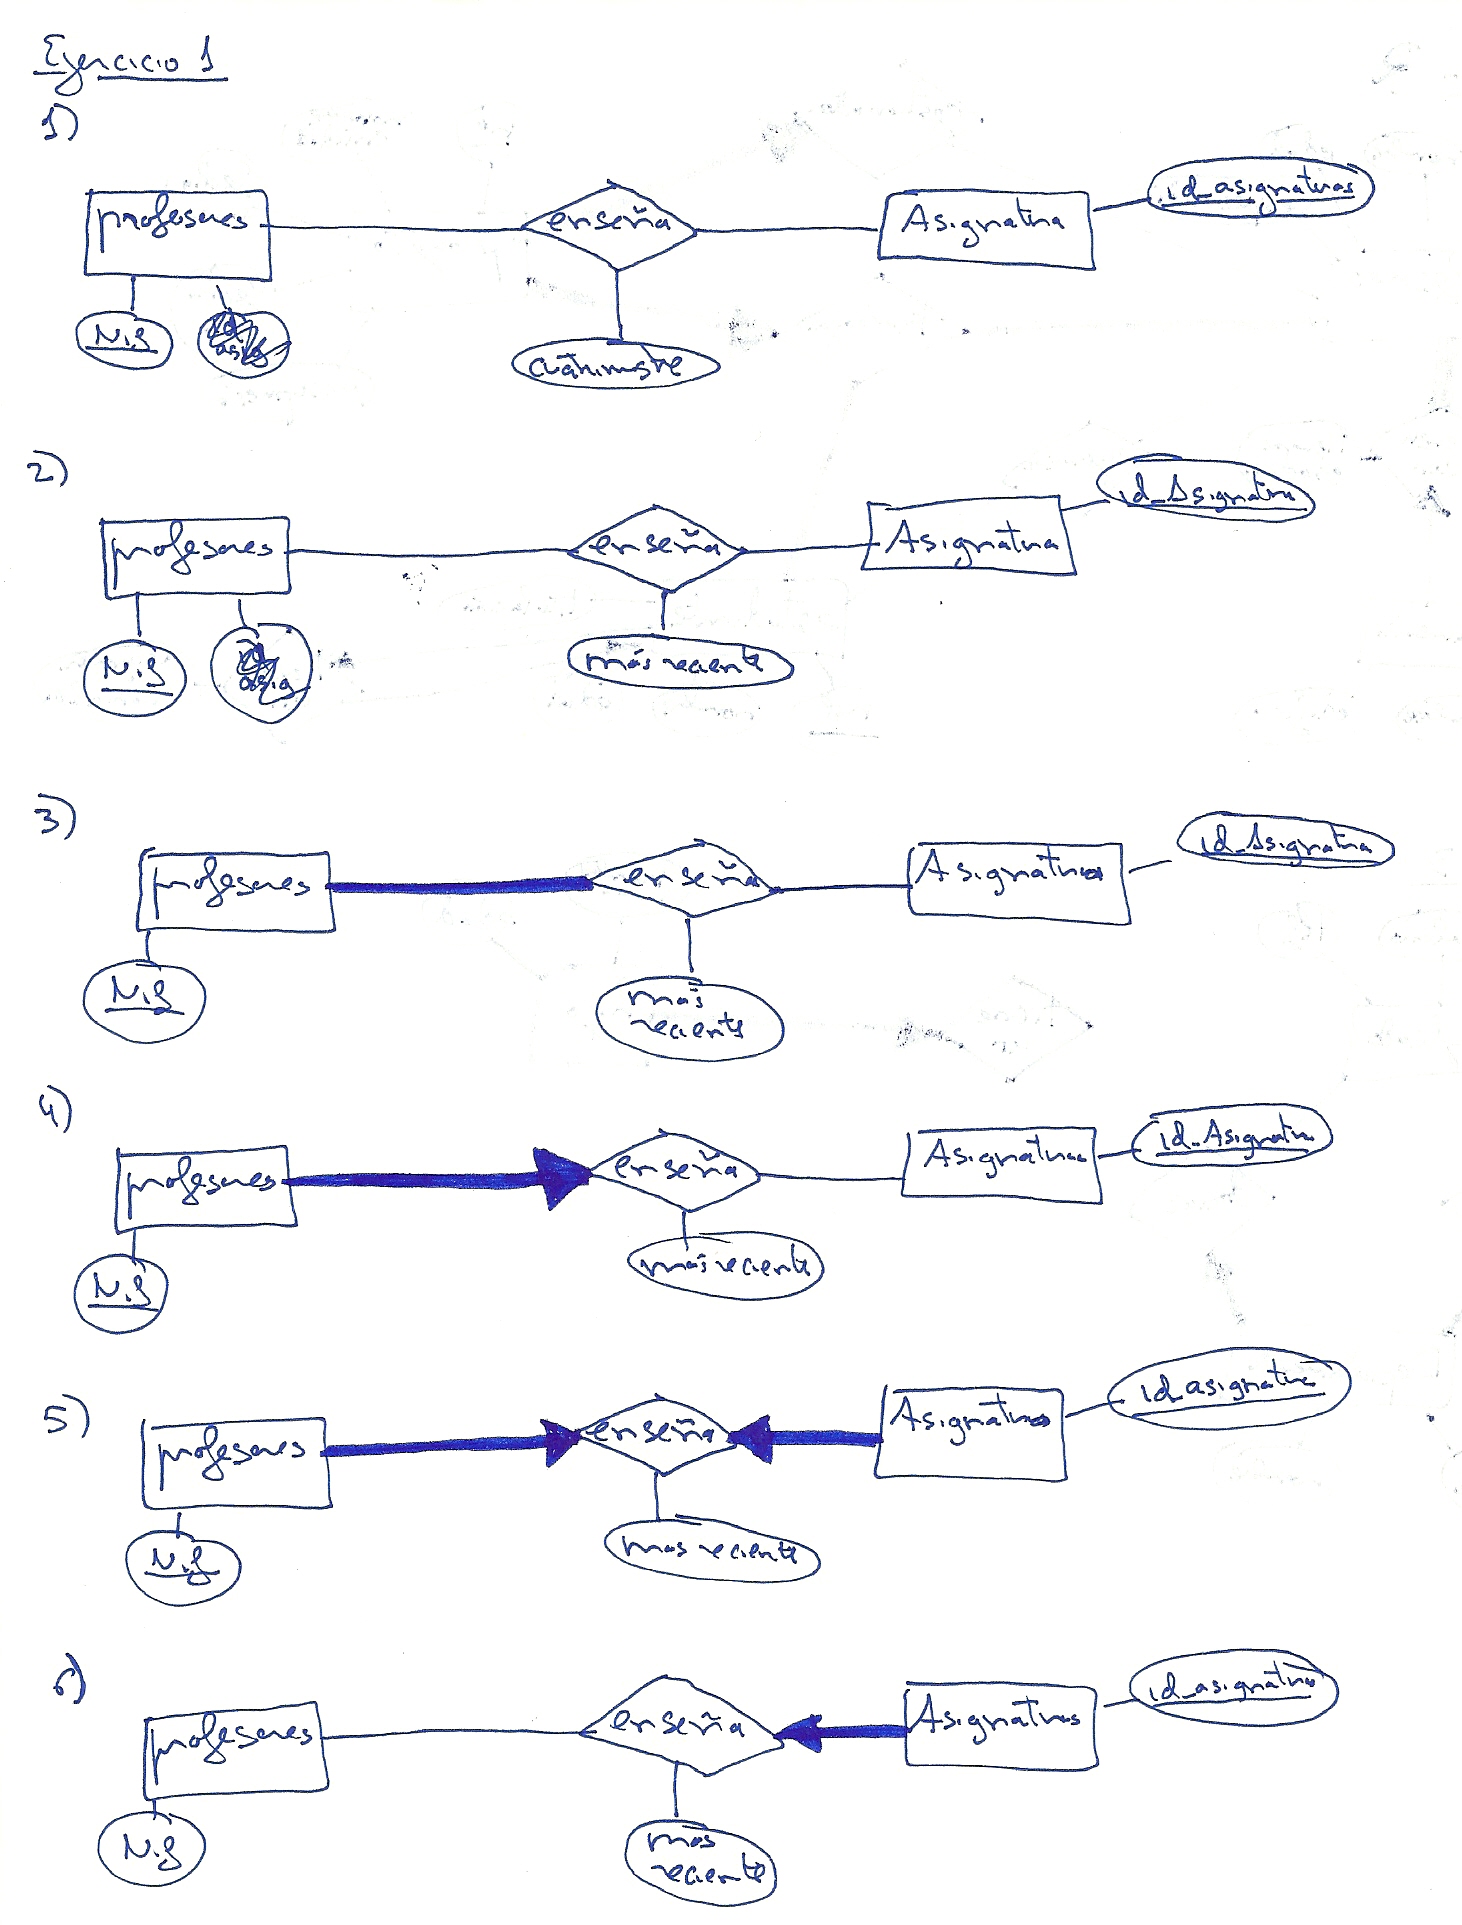 Ejercicio 1
1)
profesores
enseña
Asignatura
id_asignaturas
Nif
cuatrimestre
2)
profesores
enseña
Asignatura
id_Asignatura
Nif
más reciente
3)
profesores
enseña
Asignaturas
id_Asignatura
Nif
más
reciente
4)
profesores
enseña
Asignaturas
id_Asignatura
Nif
más reciente
5)
profesores
enseña
Asignaturas
id_asignatura
Nif
mas reciente
6)
profesores
enseña
Asignaturas
id_asignatura
Nif
mas
reciente